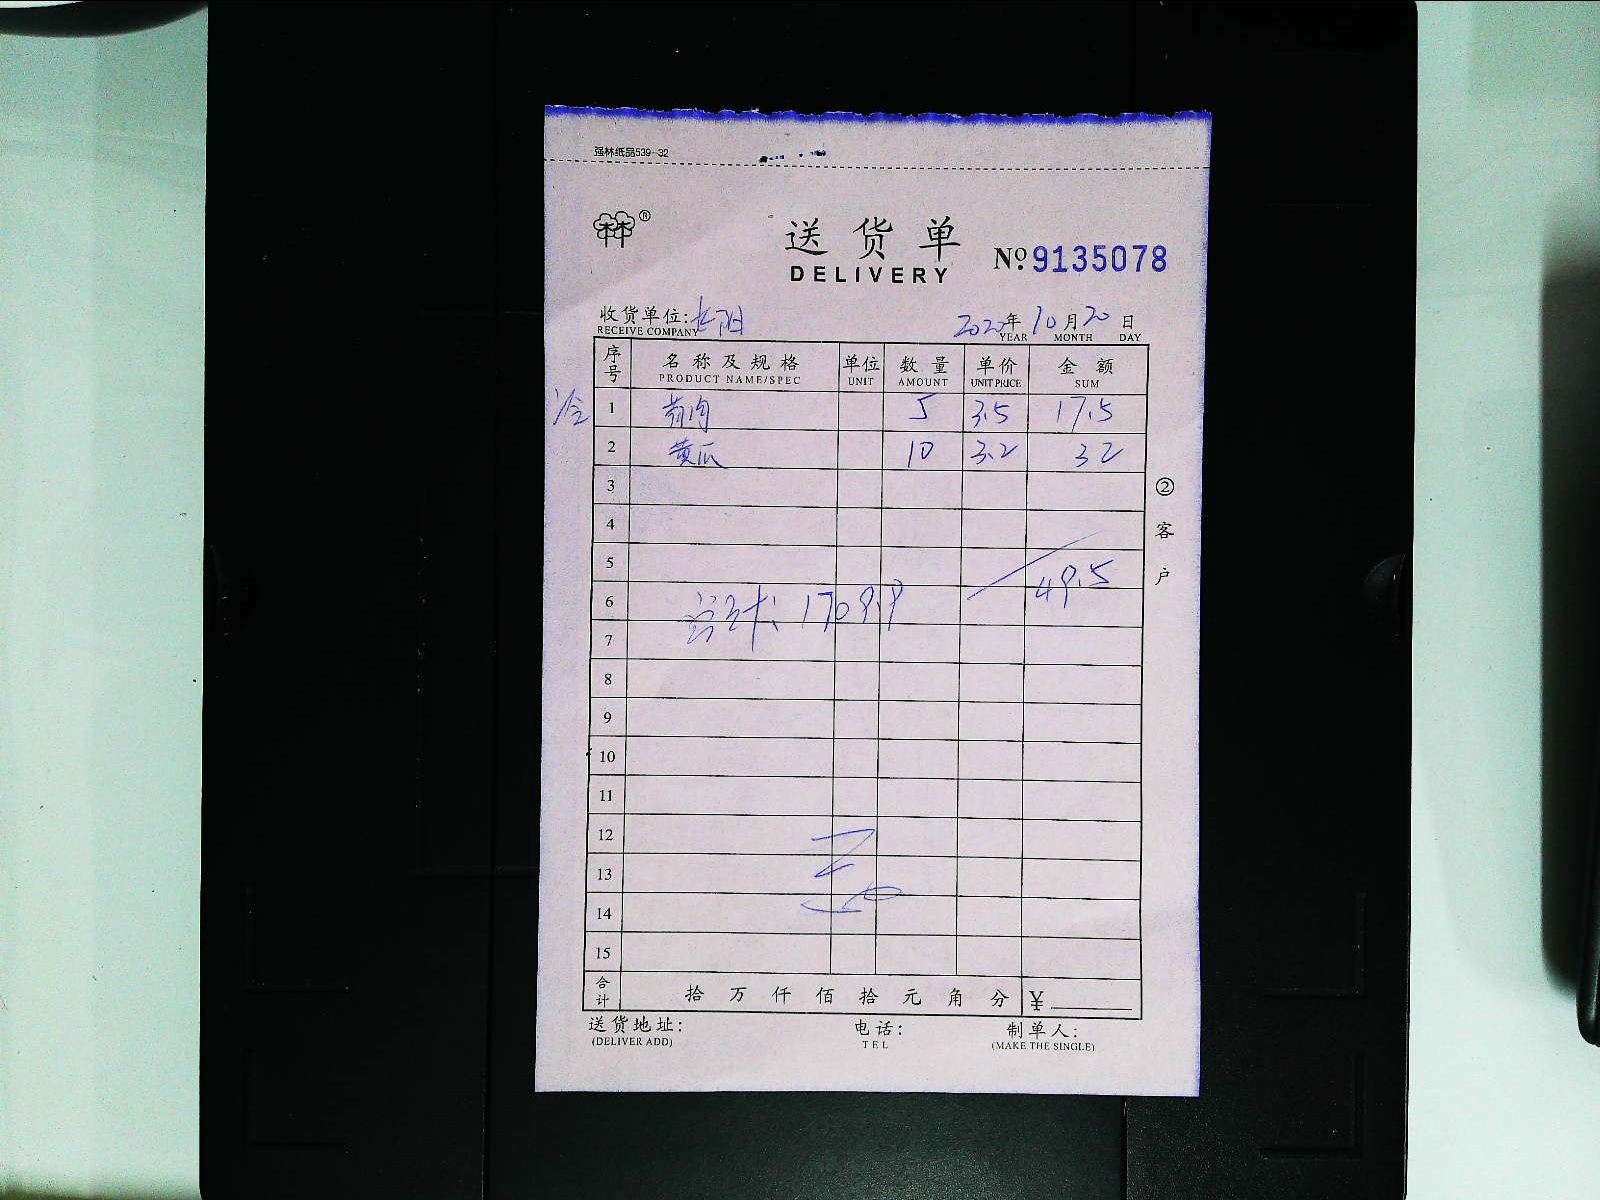 强林纸品539-32
林林®
送货单
DELIVERY
№ 9135078
收货单位: 长阳 2020年10月20日
RECEIVE COMPANY YEAR MONTH DAY
序号 名称及规格 单位 数量 单价 金额
PRODUCT NAME/SPEC UNIT AMOUNT UNIT PRICE SUM
冷 1 5 3.5 17.5
2 黄瓜 10 3.2 32
3
4
5 49.5
6 总计: 1709.9
7
8
9
10
11
12
13
14
15
合计 拾 万 仟 佰 拾 元 角 分 ¥
送货地址: 电话: 制单人:
(DELIVER ADD) TEL (MAKE THE SINGLE)
②客户